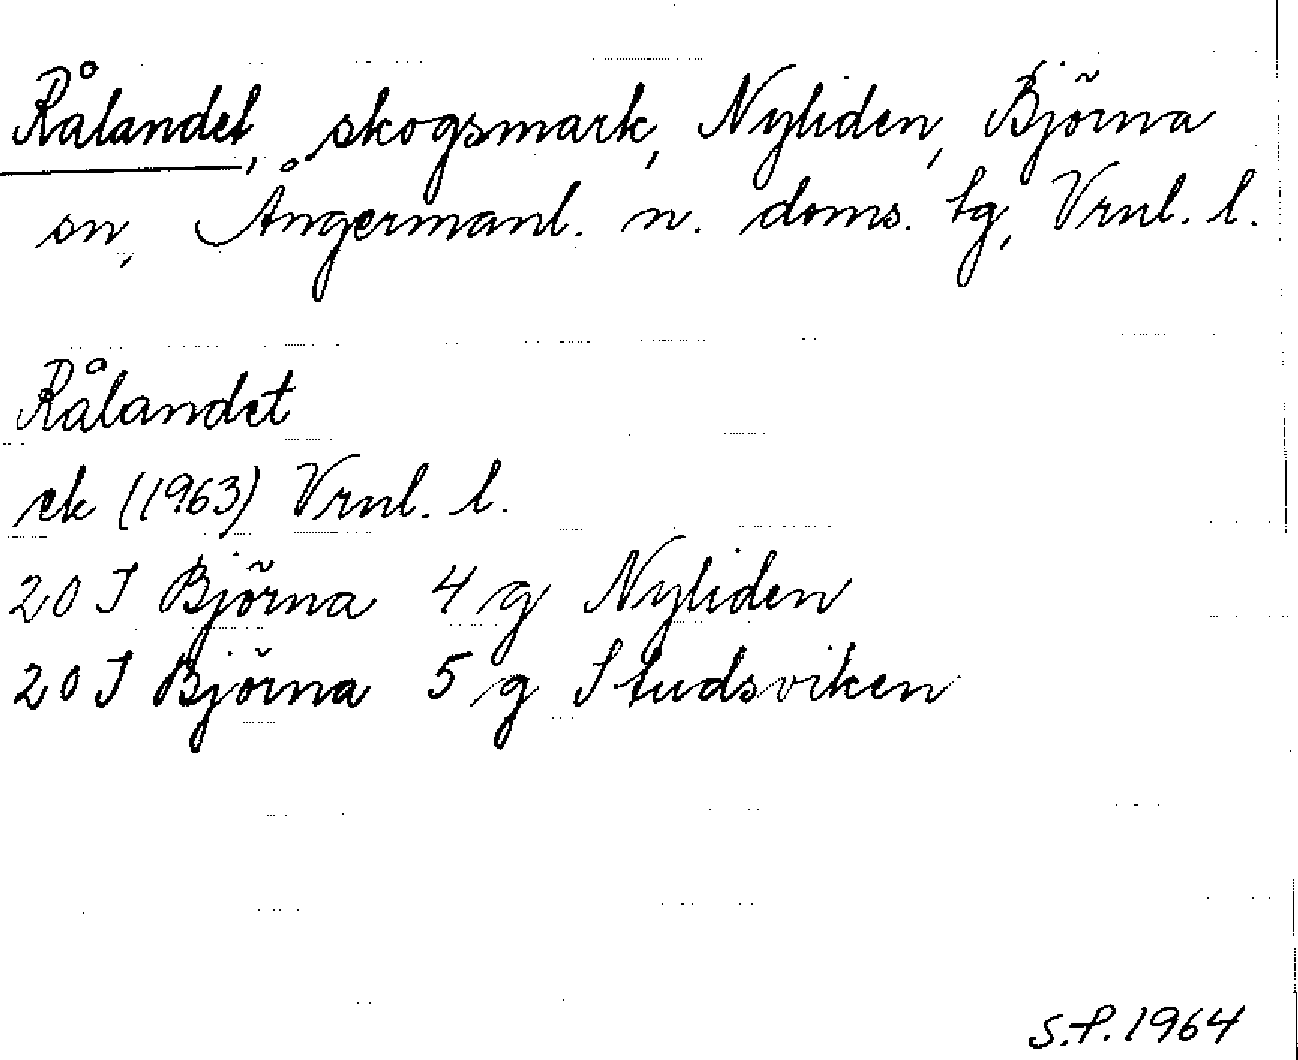 Rålandet, skogsmark, Nyliden, Björna
sn, Ångermanl. n. doms. tg, Vrnl. l.
Rålandet
ek (1963) Vrnl. l.
20 I Björna 4 g Nyliden
20 I Björna 5 g Studsviken
S.P. 1964